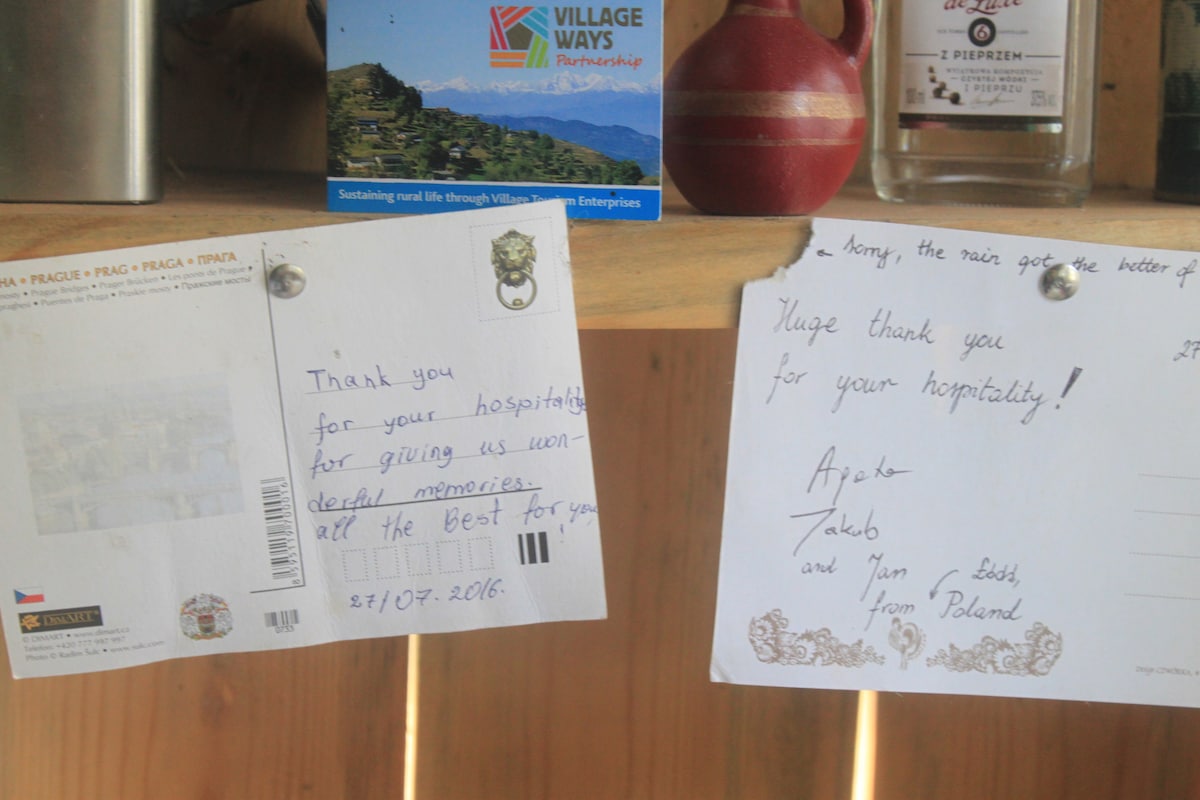 VILLAGE
WAYS
Partnership
Sustaining rural life through Village Tourism Enterprises
de Luxe
6
Z PIEPRZEM
WYJĄTKOWA KOMPOZYCJA
CZYSTEJ WÓDKI
I PIEPRZU
PRAGUE • PRAG • PRAGA • ПРАГА
mosty • Prague Bridges • Prager Brücken • Les ponts de Prague
praghesi • Puentes de Praga • Praskie mosty • Пражские мосты
Thank you
for your hospitality
for giving us won-
derful memories.
all the Best for you
!
27/07. 2016.
8595119700016
0753
DIMART
© DIMART • www.dimart.cz
Telefon: +420 777 997 997
Photo © Radim Šulc • www.sulc.com
Sorry, the rain got the better of
27
Huge thank you
for your hospitality!
Agata
Jakub
and Jan
Łódź,
from Poland